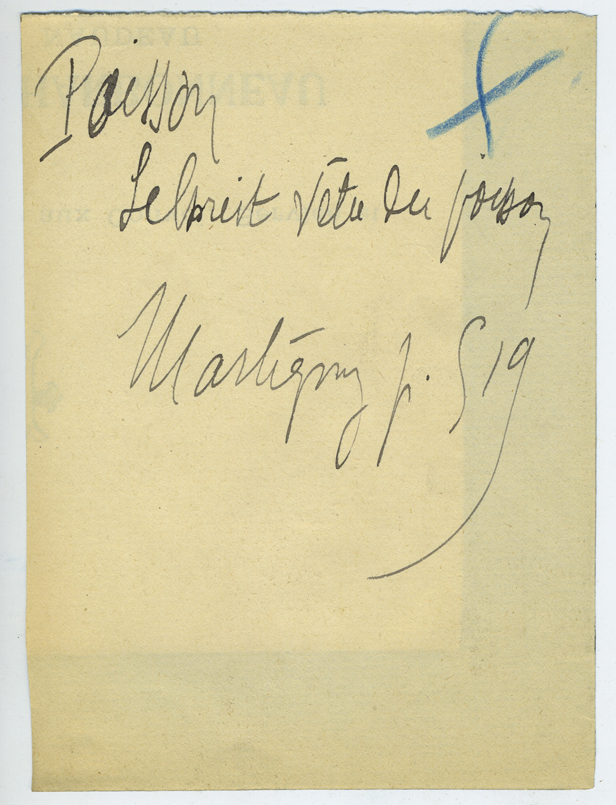 Poisson
Le Christ vêtu du poisson
Martigny p. 519